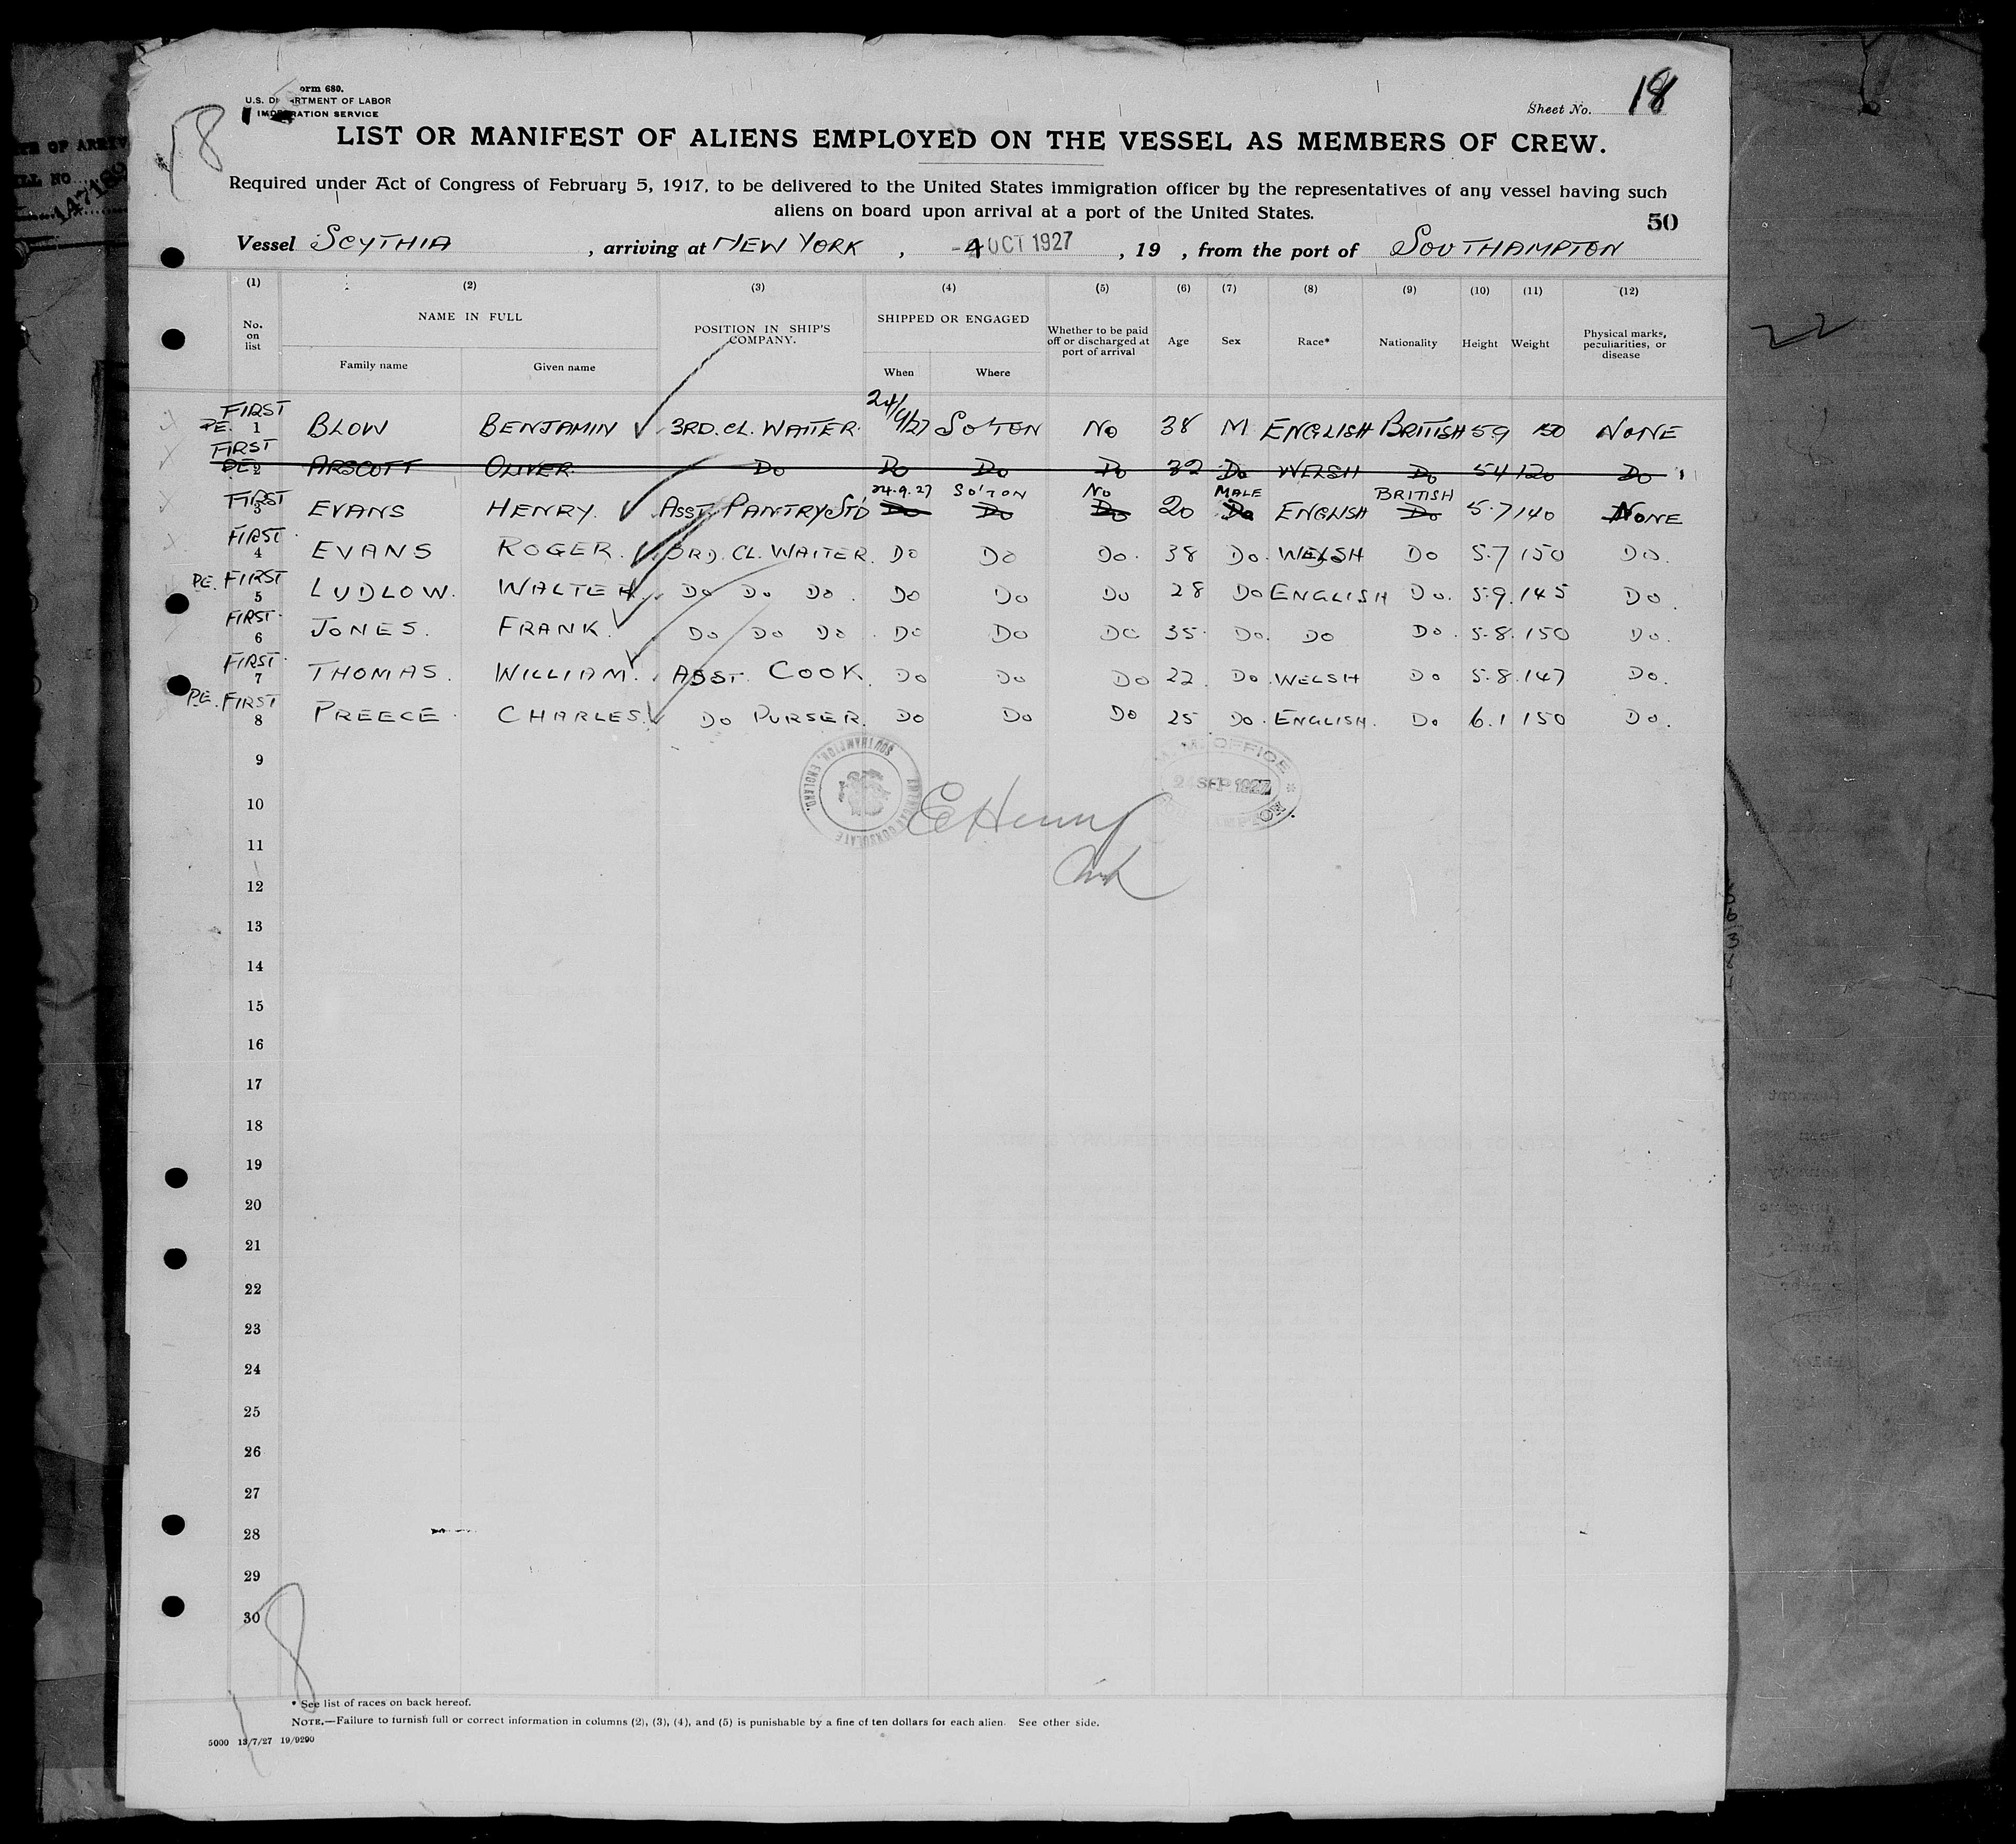 Form 680.
U.S. DEPARTMENT OF LABOR
IMMIGRATION SERVICE
18
Sheet No. 18
LIST OR MANIFEST OF ALIENS EMPLOYED ON THE VESSEL AS MEMBERS OF CREW.
Required under Act of Congress of February 5, 1917, to be delivered to the United States immigration officer by the representatives of any vessel having such
aliens on board upon arrival at a port of the United States.
50
Vessel SCYTHIA , arriving at NEW YORK , -4 OCT 1927 , 19 , from the port of SOUTHAMPTON
(1) (2) (3) (4) (5) (6) (7) (8) (9) (10) (11) (12)
No. on list NAME IN FULL POSITION IN SHIP'S COMPANY. SHIPPED OR ENGAGED Whether to be paid off or discharged at port of arrival Age Sex Race* Nationality Height Weight Physical marks, peculiarities, or disease
Family name Given name When Where
FIRST PE. 1 BLOW BENJAMIN 3RD. CL. WAITER. 24/9/27 SO'TON NO 38 M ENGLISH BRITISH 5 9 150 NONE
FIRST PE. 2 ARSCOTT OLIVER DO DO DO DO 32 DO WELSH DO 5 4 120 DO
24.9.27 SO'TON NO MALE BRITISH
FIRST 3 EVANS HENRY. ASST. PANTRY ST'D DO DO DO 20 DO ENGLISH DO 5.7 140 NONE
FIRST 4 EVANS ROGER. 3RD. CL. WAITER. DO DO DO. 38 DO. WELSH DO 5.7 150 DO.
PE. FIRST 5 LUDLOW. WALTER. DO DO DO. DO DO DO 28 DO ENGLISH DO. 5.9. 145 DO.
FIRST. 6 JONES. FRANK. DO DO DO. DO DO DO 35. DO. DO DO. 5.8. 150 DO.
FIRST. 7 THOMAS. WILLIAM. ASST. COOK. DO DO DO 22. DO. WELSH DO 5.8. 147 DO.
P.E. FIRST 8 PREECE. CHARLES. DO PURSER. DO DO DO 25 DO. ENGLISH. DO 6.1 150 DO.
9
AMERICAN CONSULATE SOUTHAMPTON, ENGLAND.
OFFICE
SEP 1927
10
EHenry
11
12
13
14
15
16
17
18
19
20
21
22
23
24
25
26
27
28
29
30
18
* See list of races on back hereof.
NOTE.—Failure to furnish full or correct information in columns (2), (3), (4), and (5) is punishable by a fine of ten dollars for each alien. See other side.
5000 13/7/27 19/9290
22